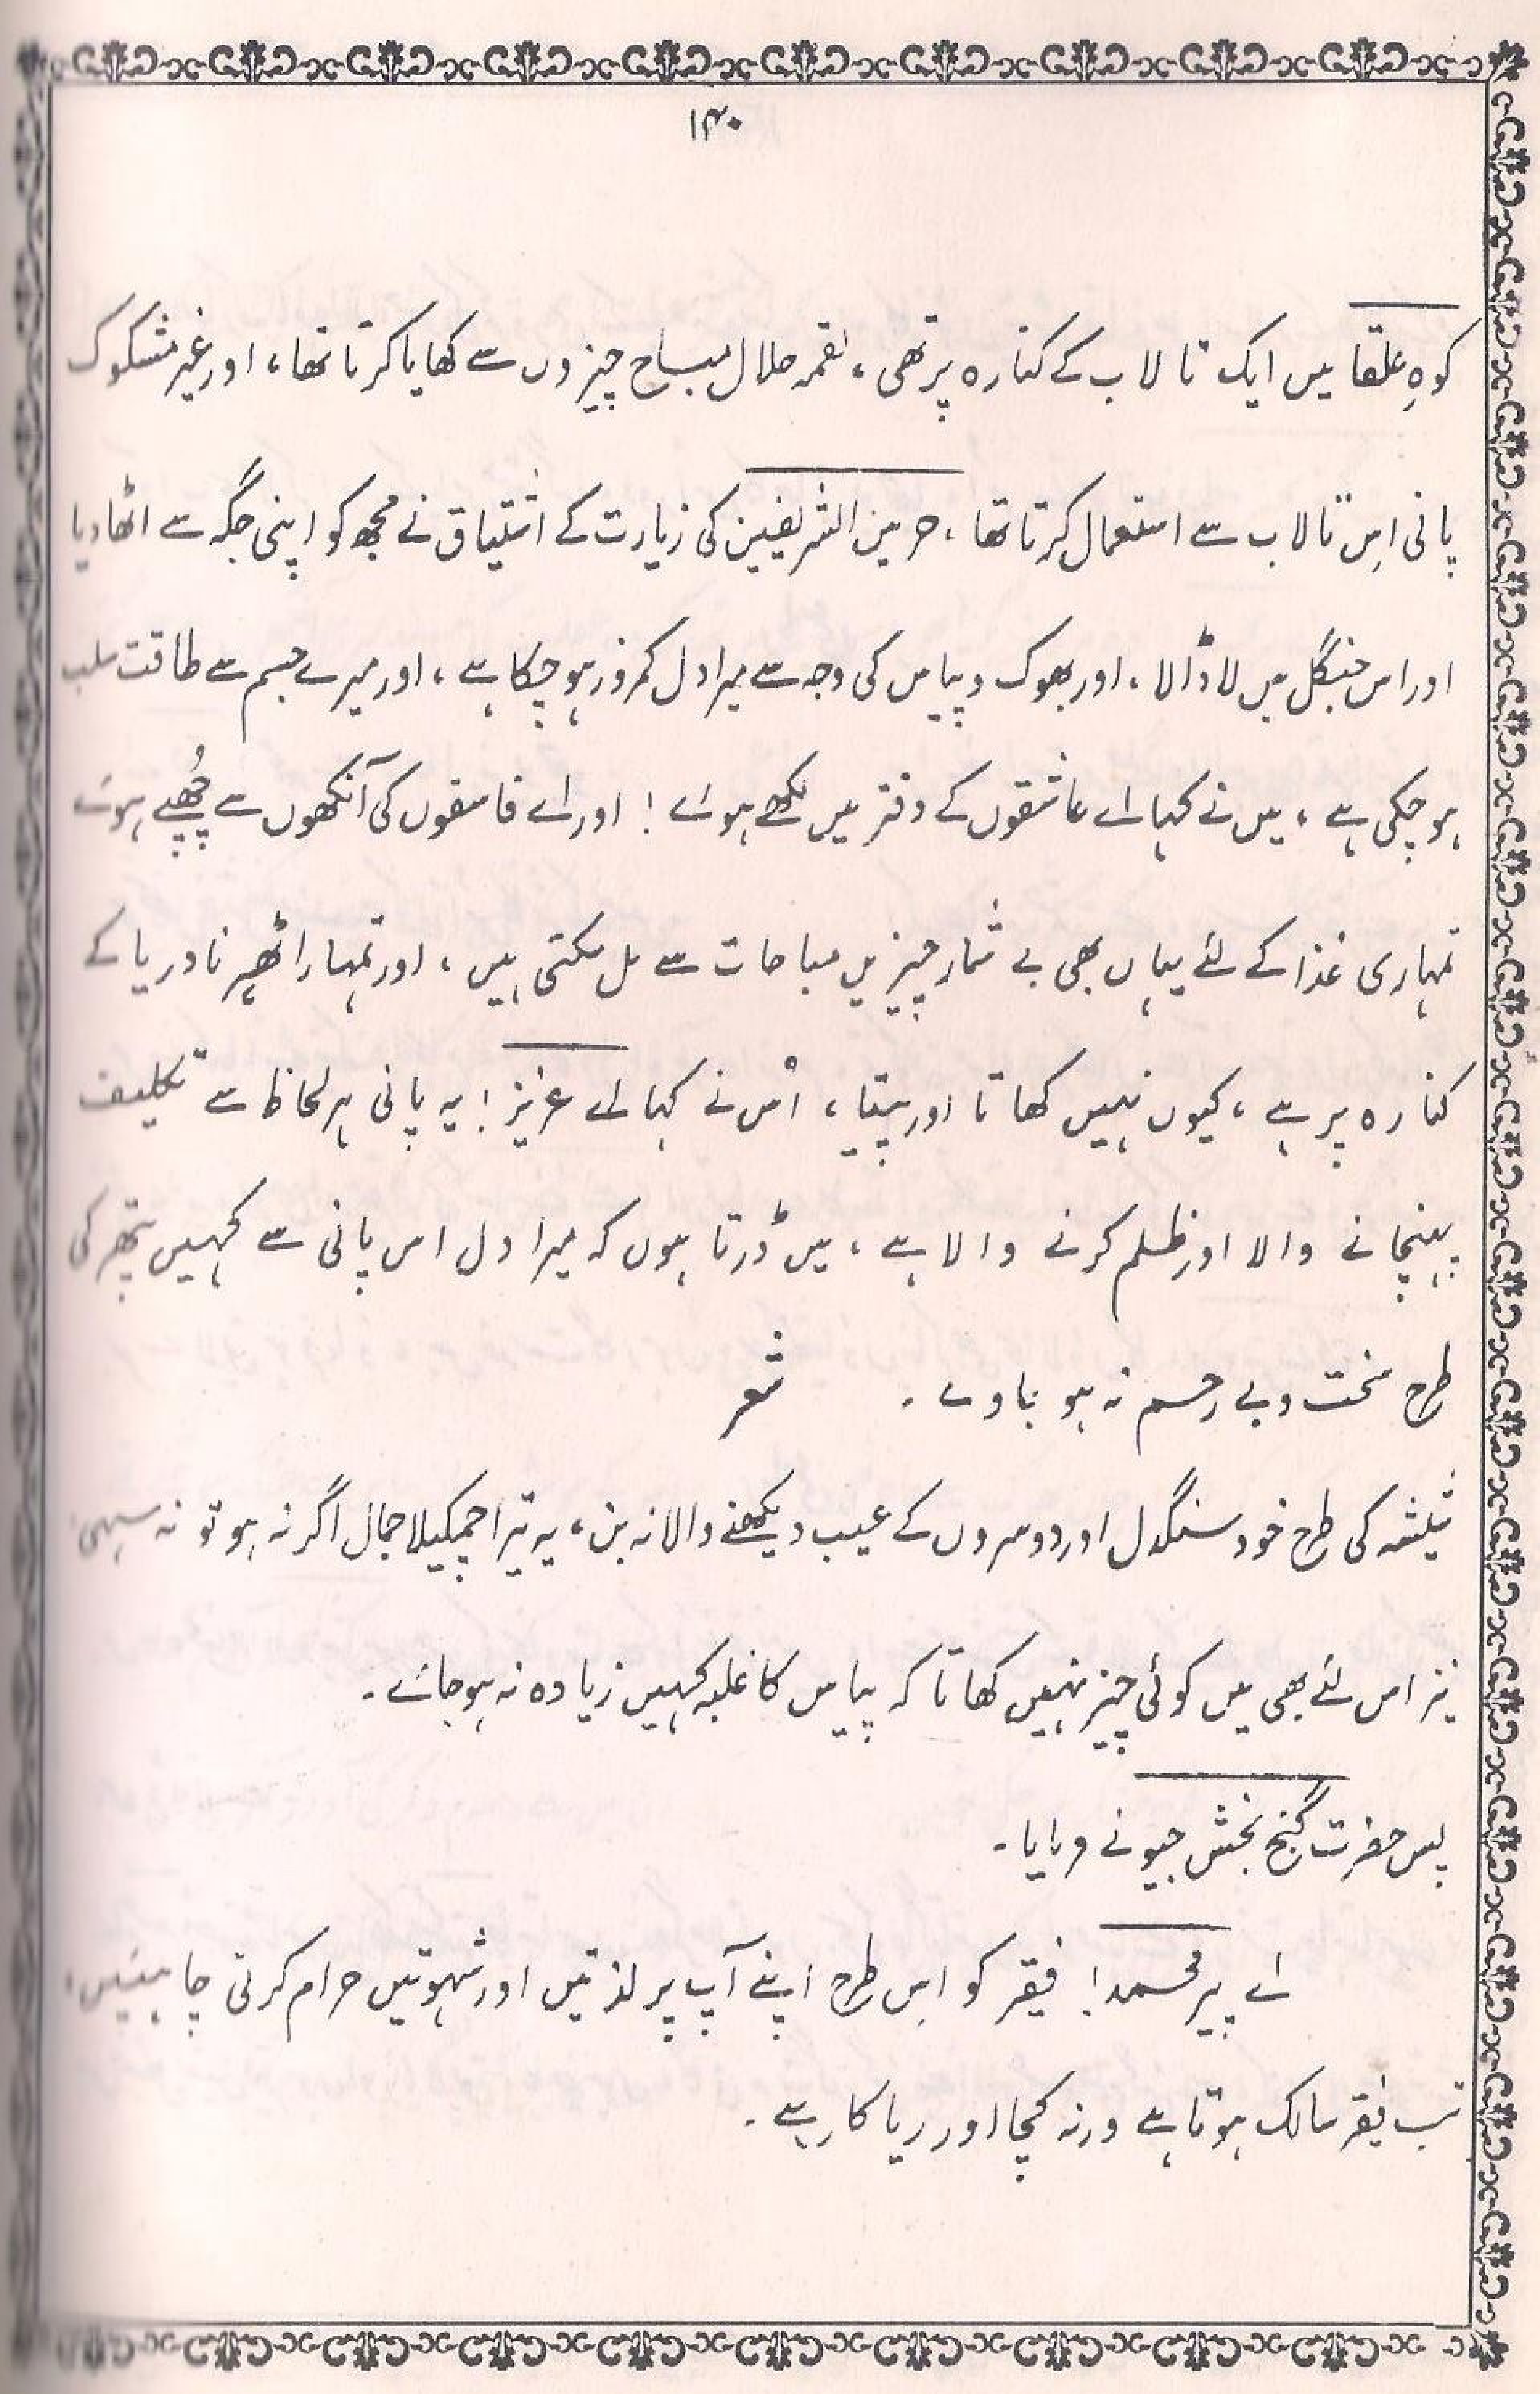 ۱۴۰
کوہِ علقا میں ایک تالاب کے کنارہ پر تھی، لقمہ حلال مباح چیزوں سے کھایا کرتا تھا، اور غیر مشکوک
پانی اِس تالاب سے استعمال کرتا تھا، حرمین الشریفین کی زیارت کے اشتیاق نے مجھ کو اپنی جگہ سے اٹھا دیا
اور اس جنگل میں لا ڈالا، اور بھوک و پیاس کی وجہ سے میرا دل کمزور ہو چکا ہے، اور میرے جسم سے طاقت سلب
ہو چکی ہے، میں نے کہا اے عاشقوں کے دفتر میں لکھے ہوئے! اور اے فاسقوں کی آنکھوں سے چُھپے ہوئے
تمہاری غذا کے لئے یہاں بھی بے شمار چیزیں مباحات سے مل سکتی ہیں، اور تمہارا ٹھیرنا دریا کے
کنارہ پر ہے، کیوں نہیں کھاتا اور پیتا، اُس نے کہا اے عزیز! یہ پانی ہر لحاظ سے تکلیف
پہنچانے والا اور ظلم کرنے والا ہے، میں ڈرتا ہوں کہ میرا دل اس پانی سے کہیں پتھر کی
طرح سخت و بے رحم نہ ہو جاوے۔ شعر
شیشہ کی طرح خود سنگدل اور دوسروں کے عیب دیکھنے والا نہ بن، یہ تیرا چمکیلا جمال اگر نہ ہو تو نہ سہی،
نیز اس لئے بھی میں کوئی چیز نہیں کھاتا کہ پیاس کا غلبہ کہیں زیادہ نہ ہو جائے۔
پس حضرت گنج بخش جیو نے فرمایا۔
اے پیر محمد! فقیر کو اِس طرح اپنے آپ پر لذتیں اور شہوتیں حرام کرنی چاہئیں،
تب فقیر سالک ہوتا ہے ورنہ کچا اور ریا کار ہے۔